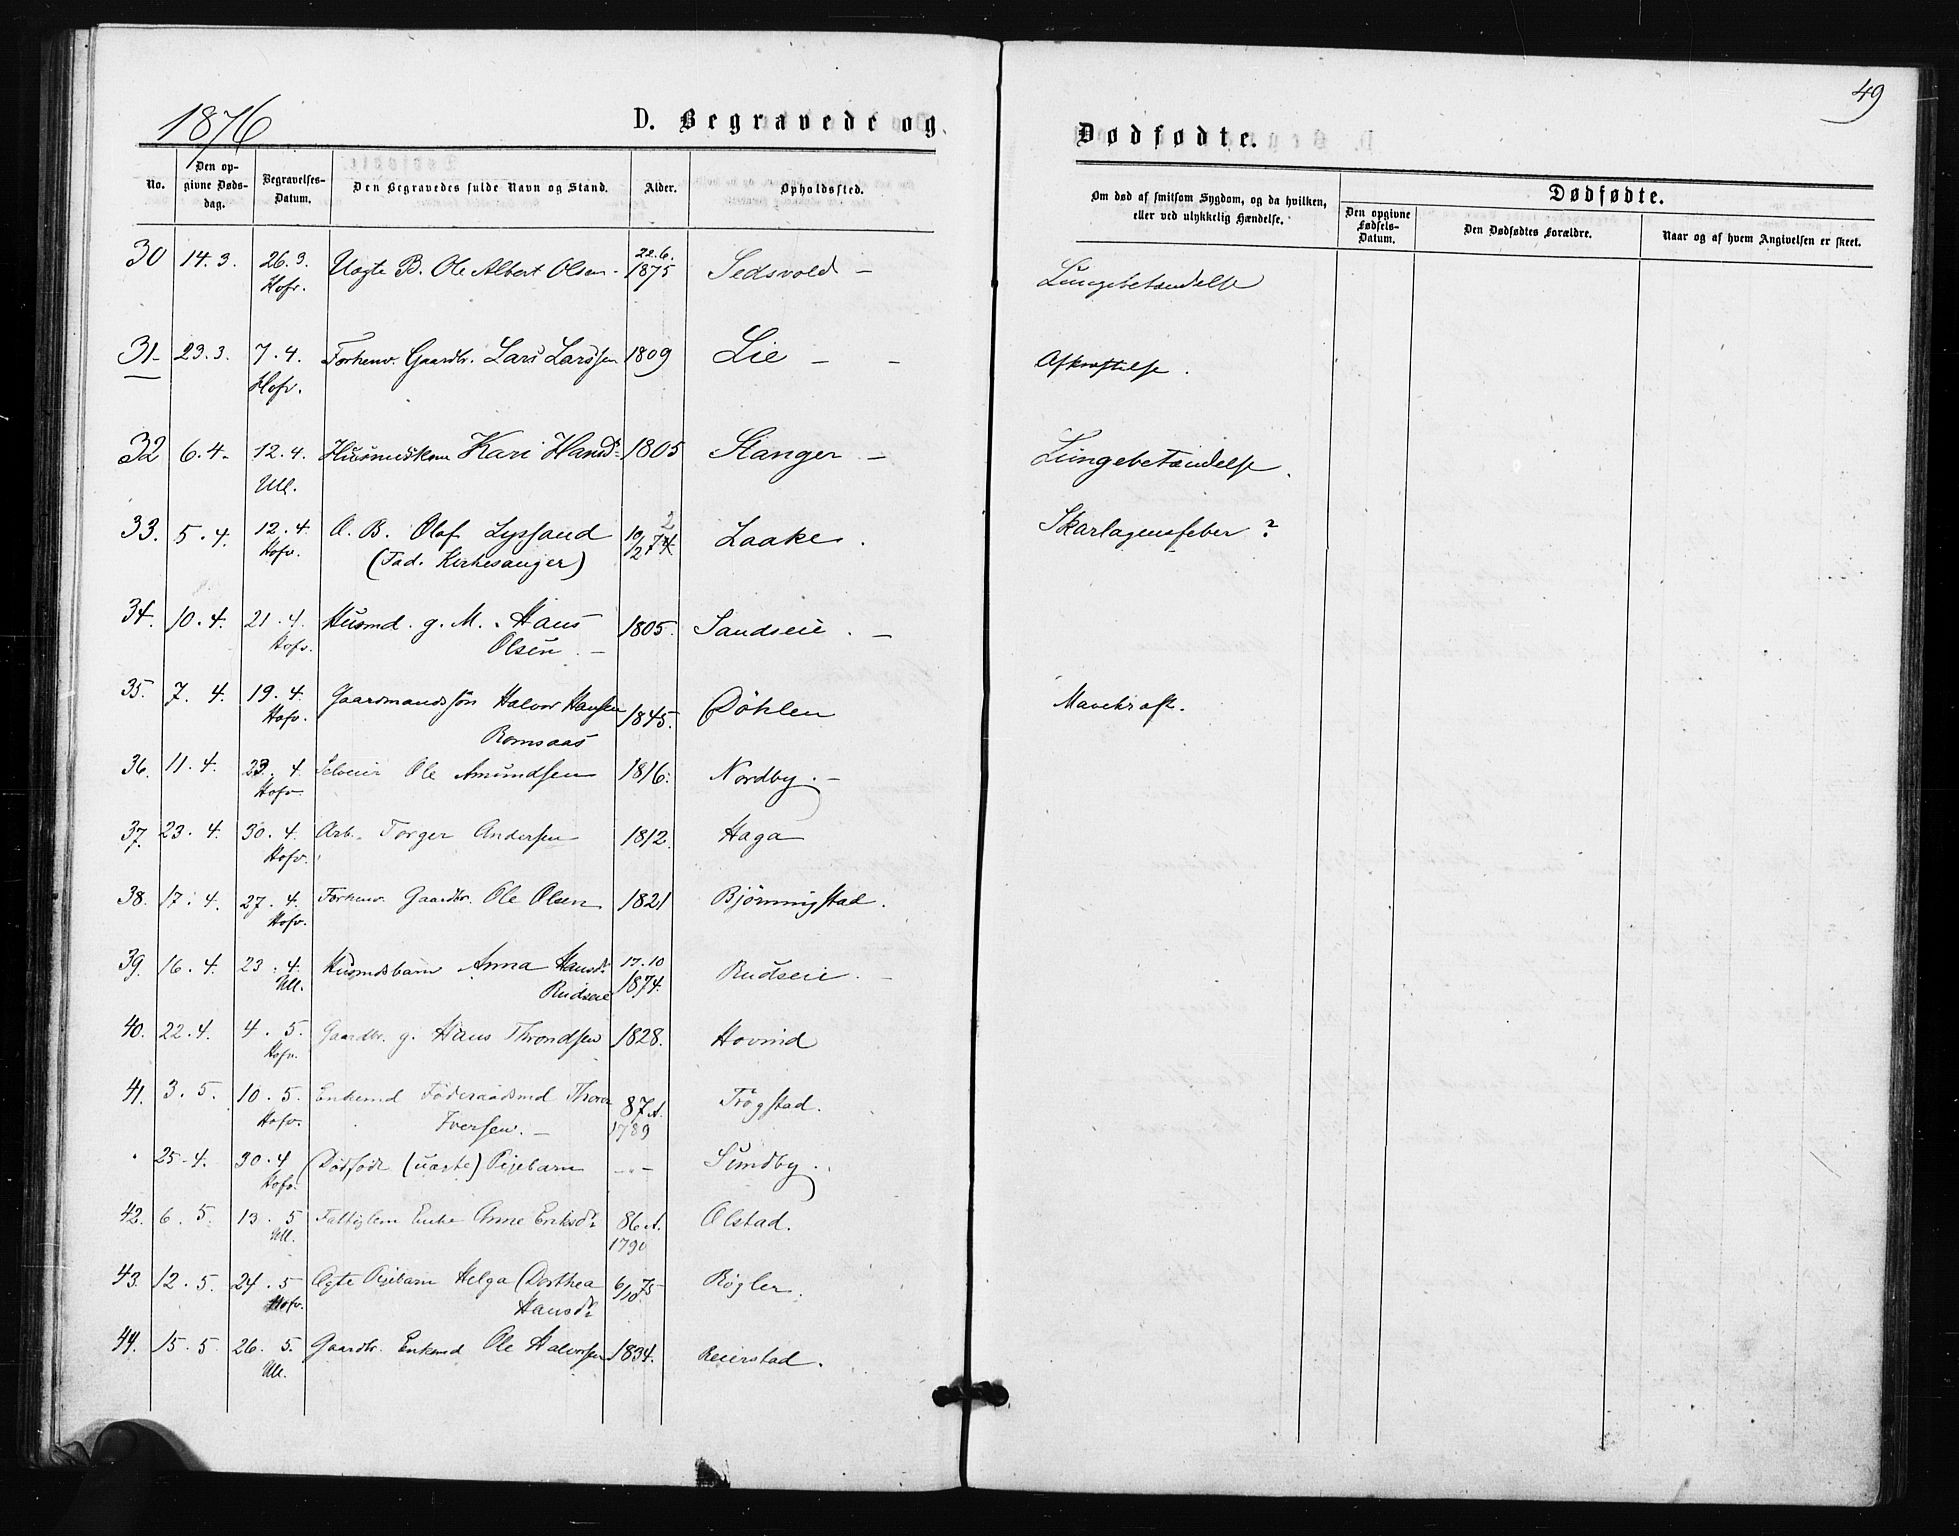 1876
D. Begravede og
Dødfødte.
49
No.
Den opgivne Dødsdag.
Begravelses-Datum.
Den Begravedes fulde Navn og Stand.
Alder.
Opholdssted.
Om død af smitsom Sygdom, og da hvilken, eller ved ulykkelig Hændelse.
Dødfødte.
Den opgivne Fødsels-Datum.
Den Dødfødtes Forældre.
Naar og af hvem Angivelsen er skeet.
30 14.3. 26.3. Hofv. Uægte B. Ole Albert Olsen 22.6. 1875 Sedsvold – Lungebetændelse
31 23.3. 7.4. Hofv. Forhenv. Gaardbr. Lars Larssen 1809 Lie – – Afkræftelse.
32 6.4. 12.4. Ull. Husmdskone Kari Hansdr 1805 Stanger – Lungebetændelse.
33. 5.4. 12.4. Hofv. Æ. B. Olaf Lyssand (Fad. Kirkesanger) 10/2 74 2 Laake. Skarlagensfeber?
34. 10.4. 21.4. Hofv. Husmd. g. M. Hans Olsen. – 1805. Sandseie. –
35. 7.4. 19.4. Hofv. Gaardmandssøn Halvor Hansen Romsaas 1845. Døhlen Mavekræft.
36. 11.4. 23.4. Hofv. Selveier Ole Amundsen 1816. Nordby. –
37. 23.4. 30.4. Hofv. Arb. Torger Andersen 1812. Haga
38. 17.4. 27.4. Hofv. Forhenv. Gaardbr. Ole Olsen 1821 Bjørningstad.
39. 16.4. 23.4. Ull. Husmdsbarn Anna Hansdr Rudseie 17.10 1874. Rudseie. –
40. 22.4. 4.5. Hofv. Gaardbr. g. Hans Throndsen 1828. Hovind
41. 3.5. 10.5. Hofv. Enkemd Føderaadsmd Thorer Iversen. – 87 A. 1789 Trøgstad.
25.4. 30.4 Hofv. Dødfødt (uægte) Pigebarn – – Sundby.
42. 6.5. 13.5 Ull. Fattiglem Enke Anne Eriksdr 86 A. 1790 Olstad.
43. 12.5. 24.5 Hofv. Ægte Pigebarn Helga Dorthea Hansdr 6/10 75 Røgler.
44. 15.5 26.5. Ull. Gaardbr. Enkemd Ole Halvorsen 1834. Reierstad.